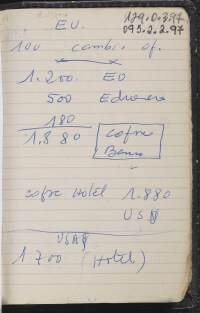 179.0.397
095.2.2.97
E.V.
100 cambio of.
1.200. EO
500
180
1.880
cofre
Banco
cofre Hotel 1.880
US$
US$
1.700 (Hotel)